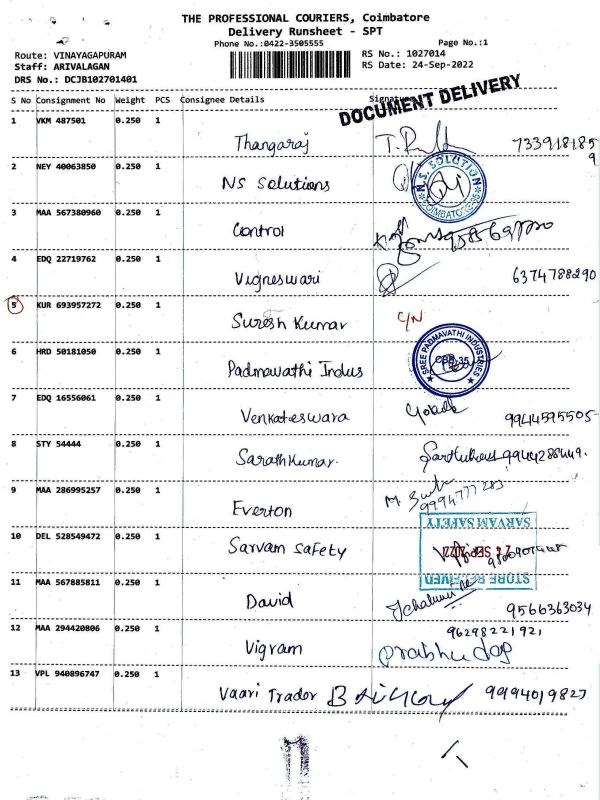 THE PROFESSIONAL COURIERS, Coimbatore
Delivery Runsheet - SPT
Phone No.:0422-3505555
Page No.:1
Route: VINAYAGAPURAM
RS No.: 1027014
Staff: ARIVALAGAN
RS Date: 24-Sep-2022
DRS No.: DCJB102701401
DOCUMENT DELIVERY
S No Consignment No Weight PCS Consignee Details Signature
1 VKM 487501 0.250 1
Thangaraj 7339181859
2 NEY 40063850 0.250 1
NS Solutions N.S. SOLUTION COIMBATORE-35
3 MAA 567380960 0.250 1
Control
4 EDQ 22719762 0.250 1
Vigneswari 6374788290
5 KUR 693957272 0.250 1
Suresh Kumar C/N
6 HRD 50181050 0.250 1
Padmavathi Indus SREE PADMAVATHI INDUSTRIES CBE-35
7 EDQ 16556061 0.250 1
Venkateswara 9944595505
8 STY 54444 0.250 1
Sarath Kumar. 9944286449.
9 MAA 286995257 0.250 1
Everton 9994777283
10 DEL 528549472 0.250 1
Sarvam Safety SARVAM SAFETY
SEP 2022
STORE RECEIVED
11 MAA 567885811 0.250 1
David 9566363034
12 MAA 294420806 0.250 1
96298221921
Vigram Prabhu dop
13 VPL 940896747 0.250 1
Vaari Trador 9994019827